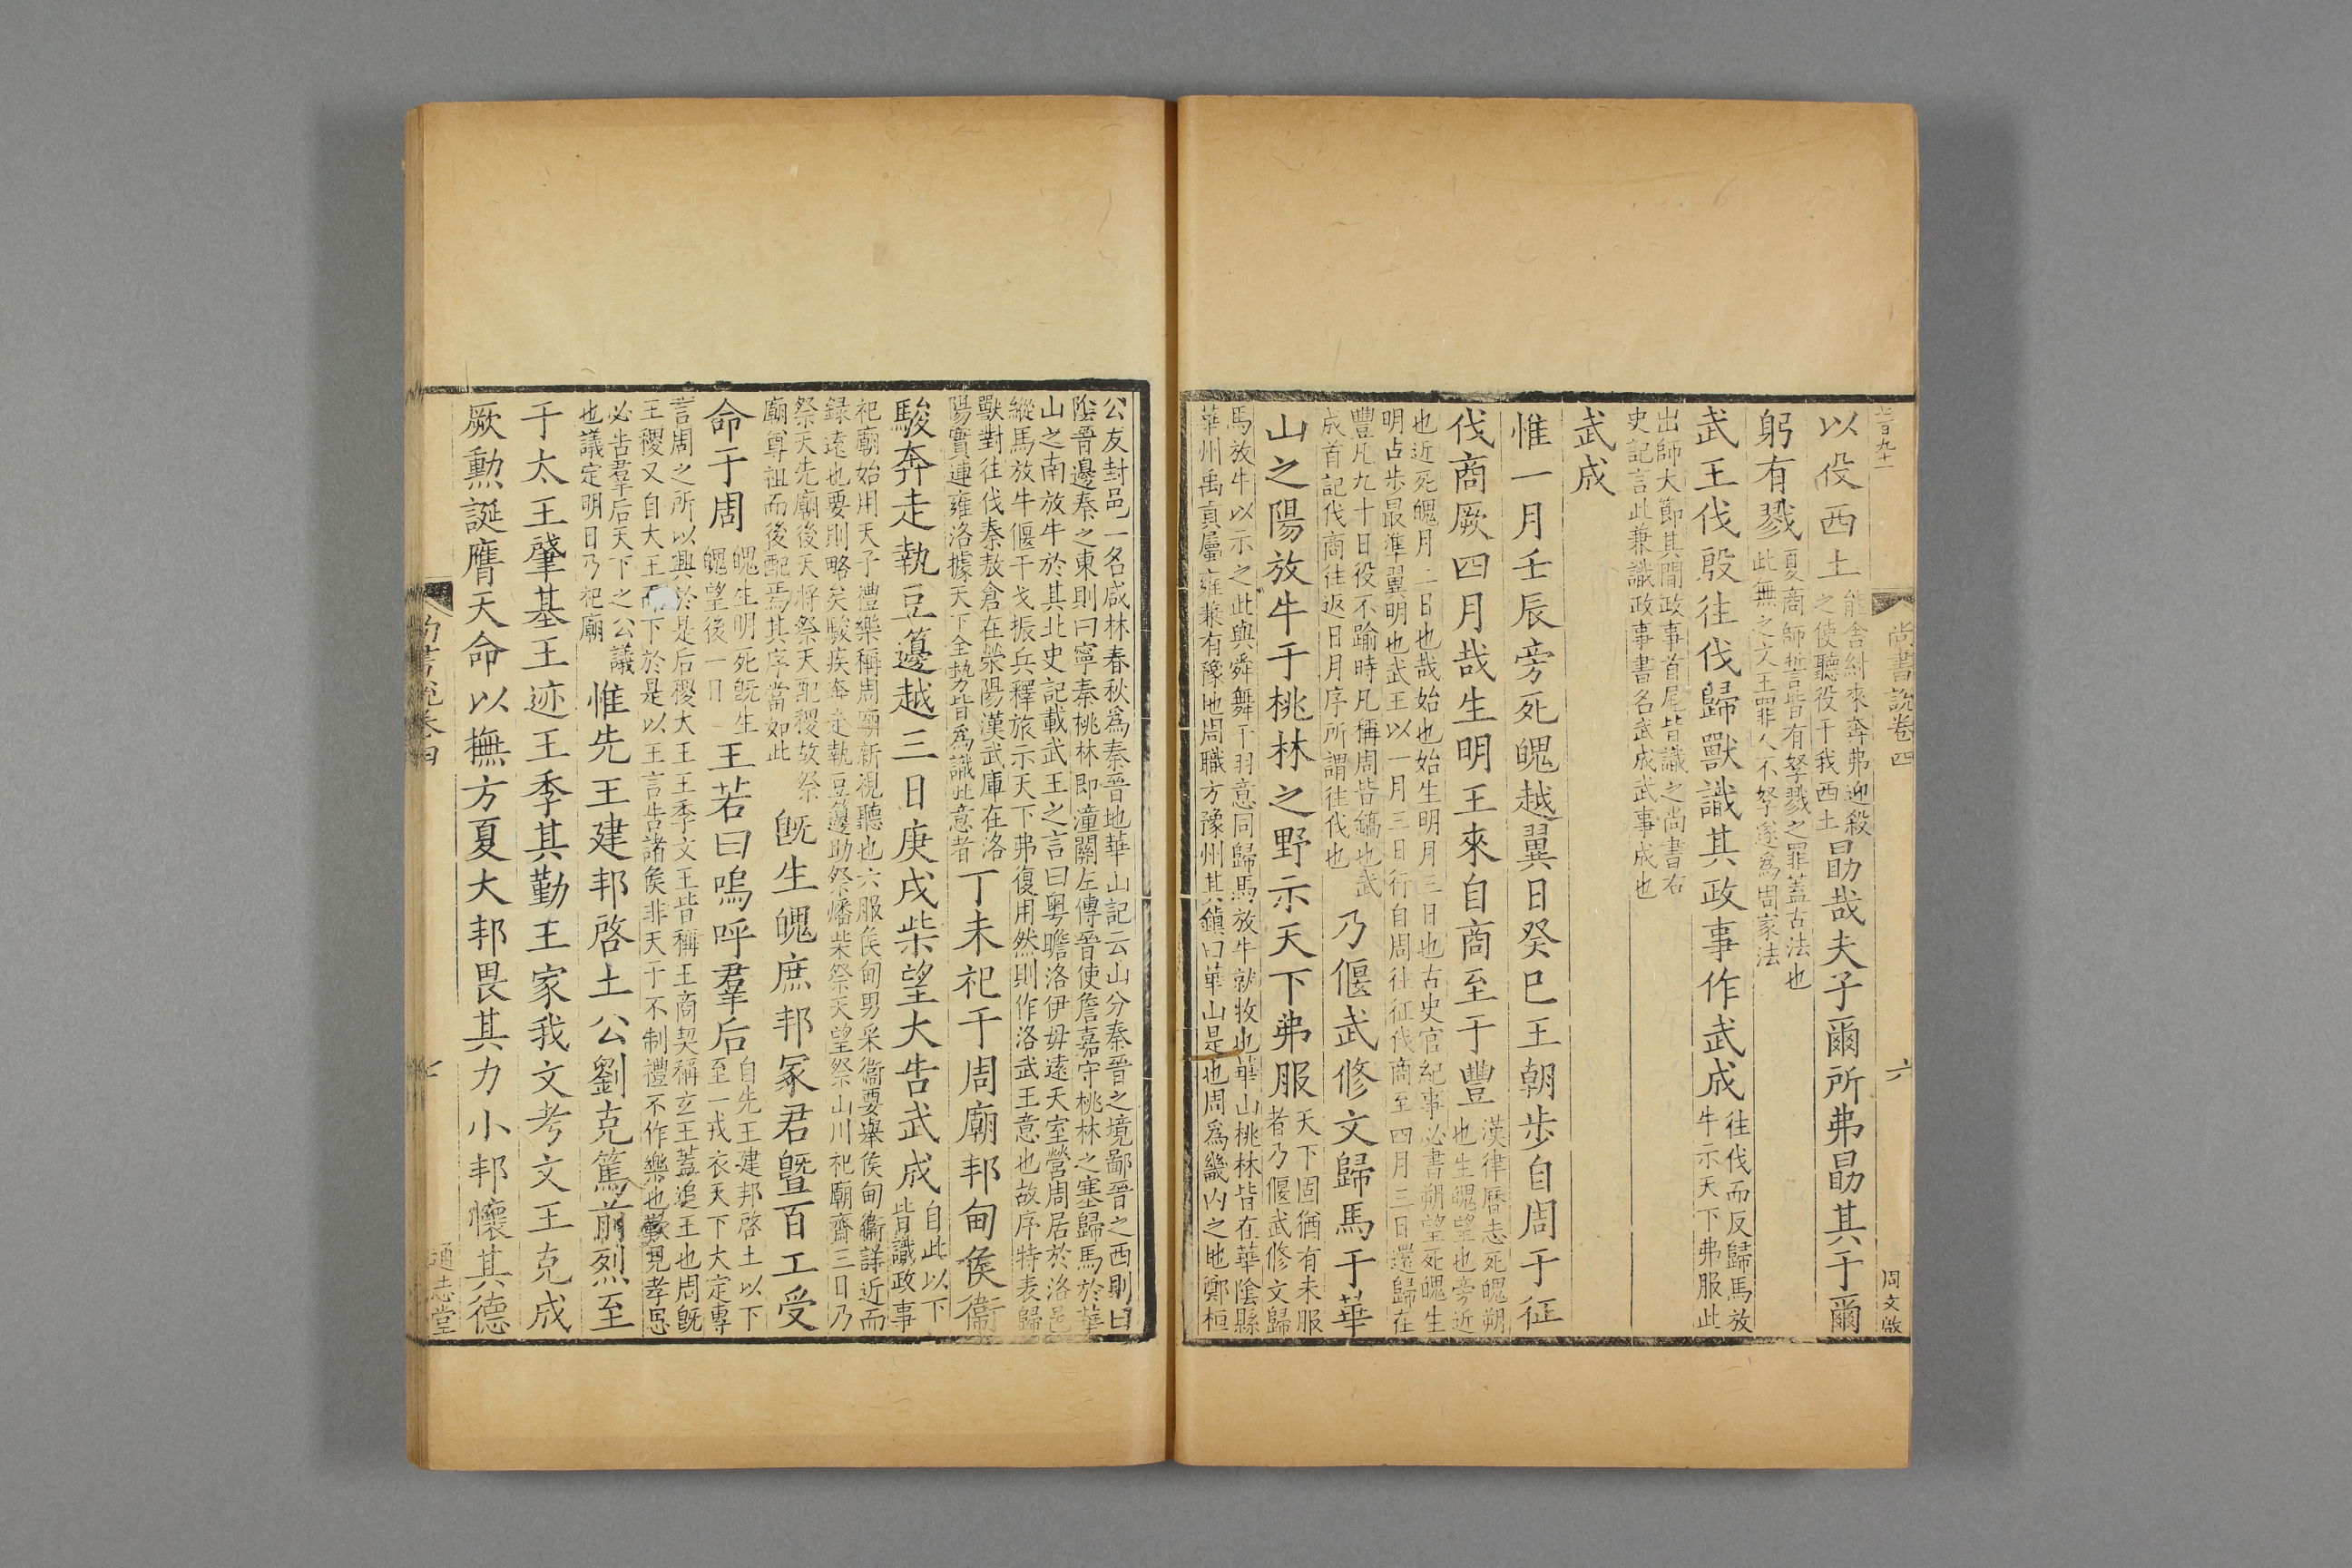 尚書說卷四
六
周文啟
以役西土能舍紂來奔弗迎殺之使聽役于我西土勗哉夫子爾所弗勗其于爾
躬有戮夏商師誓言皆有孥戮之罪蓋古法也此無之文王罪人不孥遂為周家法
武王伐殷往伐歸獸識其政事作武成往伐而反歸馬放牛示天下弗服此
出師大節其間政事首尾皆識之尚書右史記言此兼識政事書名武成武事成也
武成
惟一月壬辰旁死魄越翼日癸巳王朝步自周于征
伐商厥四月哉生明王來自商至于豐漢律曆志死魄朔也生魄望也旁近
也近死魄月二日也哉始也始生明月三日也古史官紀事必書朔望死魄生明占步最準翼明也武王以一月三日行自周往征伐商至四月三日還歸在
豐凡九十日役不踰時凡稱周皆鎬也武成首記伐商往返日月序所謂往伐也乃偃武修文歸馬于華
山之陽放牛于桃林之野示天下弗服天下固猶有未服者乃偃武修文歸
馬放牛以示之此與舜舞干羽意同歸馬放牛就牧也華山桃林皆在華陰縣華州禹貢屬雍兼有豫地周職方豫州其鎮曰華山是也周為畿內之地鄭桓
公友封邑一名咸林春秋為秦晉地華山記云山分秦晉之境鄙晉之西則曰陰晉邊秦之東則曰寧秦桃林即潼關左傳晉使詹嘉守桃林之塞歸馬於華
山之南放牛於其北史記載武王之言曰粵瞻洛伊毋遠天室營周居於洛邑縱馬放牛偃干戈振兵釋旅示天下弗復用然則作洛武王意也故序特表歸
獸對往伐秦敖倉在滎陽漢武庫在洛陽實連雍洛據天下全勢皆為識此意者丁未祀于周廟邦甸侯衞
駿奔走執豆籩越三日庚戌柴望大告武成自此以下皆識政事
祀廟始用天子禮樂稱周廟新視聽也六服侯甸男采衞要舉侯甸衞詳近而録遠也要則略矣駿疾奔走執豆籩助祭燔柴祭天望祭山川祀廟齋三日乃
祭天先廟後天將祭天配稷故祭廟尊祖而後配焉其序當如此既生魄庶邦冢君暨百工受
命于周魄生明死既生魄望後一日王若曰嗚呼羣后自先王建邦啓土以下至一戎衣天下大定專
言周之所以興於是后稷大王王季文王皆稱王商契稱玄王蓋追王也周既王稷又自大王而下於是以王言告諸侯非天子不制禮不作樂也歎見孝思
必告羣后天下之公議也議定明日乃祀廟惟先王建邦啓土公劉克篤前烈至
于太王肇基王迹王季其勤王家我文考文王克成
厥勳誕膺天命以撫方夏大邦畏其力小邦懷其德
書說卷四
七
通志堂